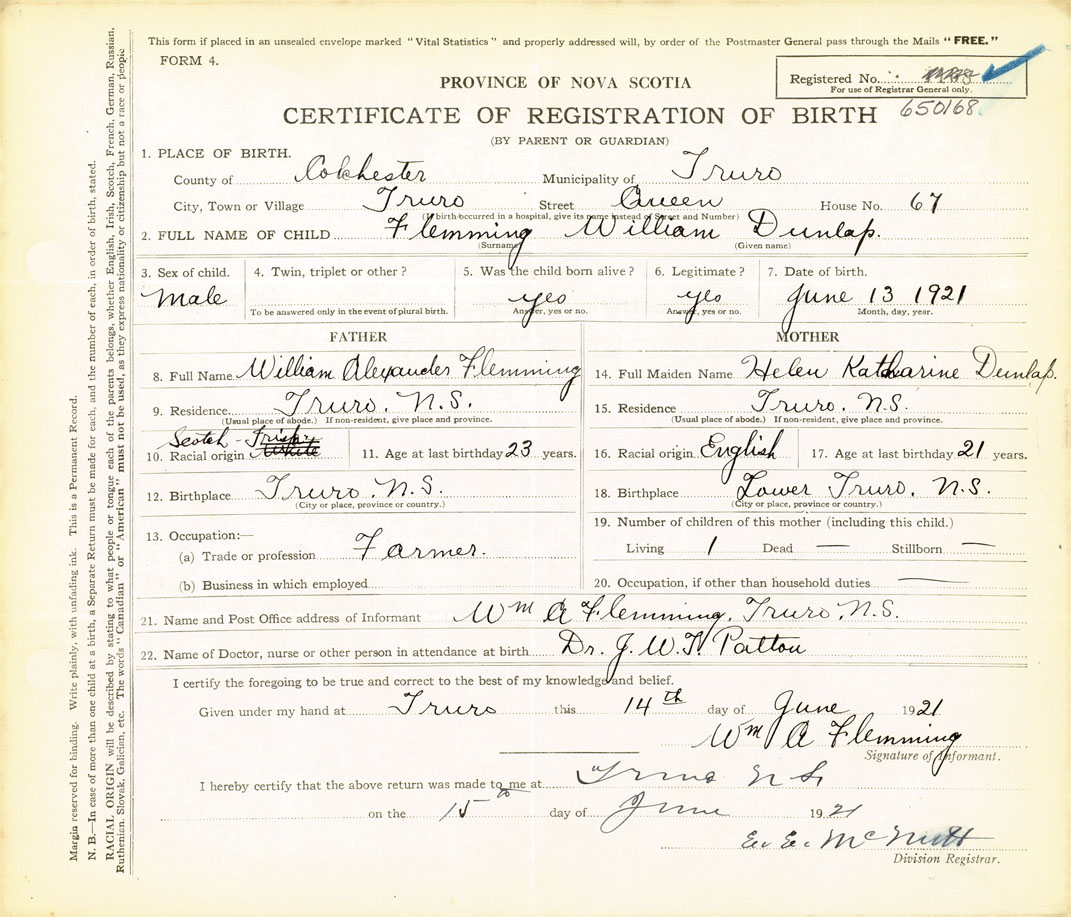 This form if placed in an unsealed envelope marked "Vital Statistics" and properly addressed will, by order of the Postmaster General pass through the Mails "FREE."
FORM 4.
Registered No.
For use of Registrar General only.
650168
PROVINCE OF NOVA SCOTIA
CERTIFICATE OF REGISTRATION OF BIRTH
(BY PARENT OR GUARDIAN)
1. PLACE OF BIRTH.
County of Colchester Municipality of Truro
City, Town or Village Truro Street Queen House No. 67
(If birth occurred in a hospital, give its name instead of Street and Number)
2. FULL NAME OF CHILD Flemming William Dunlap.
(Surname) (Given name)
3. Sex of child. 4. Twin, triplet or other? 5. Was the child born alive? 6. Legitimate? 7. Date of birth.
Male yes yes June 13 1921
To be answered only in the event of plural birth. Answer, yes or no. Answer, yes or no. Month, day, year.
FATHER MOTHER
8. Full Name William Alexander Flemming 14. Full Maiden Name Helen Katharine Dunlap.
9. Residence Truro, N.S. 15. Residence Truro, N.S.
(Usual place of abode.) If non-resident, give place and province. (Usual place of abode.) If non-resident, give place and province.
Scotch - Irish
10. Racial origin White 11. Age at last birthday 23 years. 16. Racial origin English 17. Age at last birthday 21 years.
12. Birthplace Truro, N.S. 18. Birthplace Lower Truro, N.S.
(City or place, province or country.) (City or place, province or country.)
13. Occupation:— 19. Number of children of this mother (including this child.)
(a) Trade or profession Farmer. Living 1 Dead — Stillborn —
(b) Business in which employed 20. Occupation, if other than household duties —
21. Name and Post Office address of Informant Wm A Flemming, Truro, N.S.
22. Name of Doctor, nurse or other person in attendance at birth Dr. J. W. T. Patton
I certify the foregoing to be true and correct to the best of my knowledge and belief.
Given under my hand at Truro this 14th day of June 1921
Wm A Flemming
Signature of Informant.
I hereby certify that the above return was made to me at Truro N S
on the 15 day of June 1921
E. E. McNutt
Division Registrar.
Margin reserved for binding. Write plainly, with unfading ink. This is a Permanent Record.
N. B.—In case of more than one child at a birth, a Separate Return must be made for each, and the number of each, in order of birth, stated.
RACIAL ORIGIN will be described by stating to what people or tongue each of the parents belongs, whether English, Irish, Scotch, French, German, Russian,
Ruthenian, Slovak, Galician, etc. The words "Canadian" or "American" must not be used, as they express nationality or citizenship but not a race or people